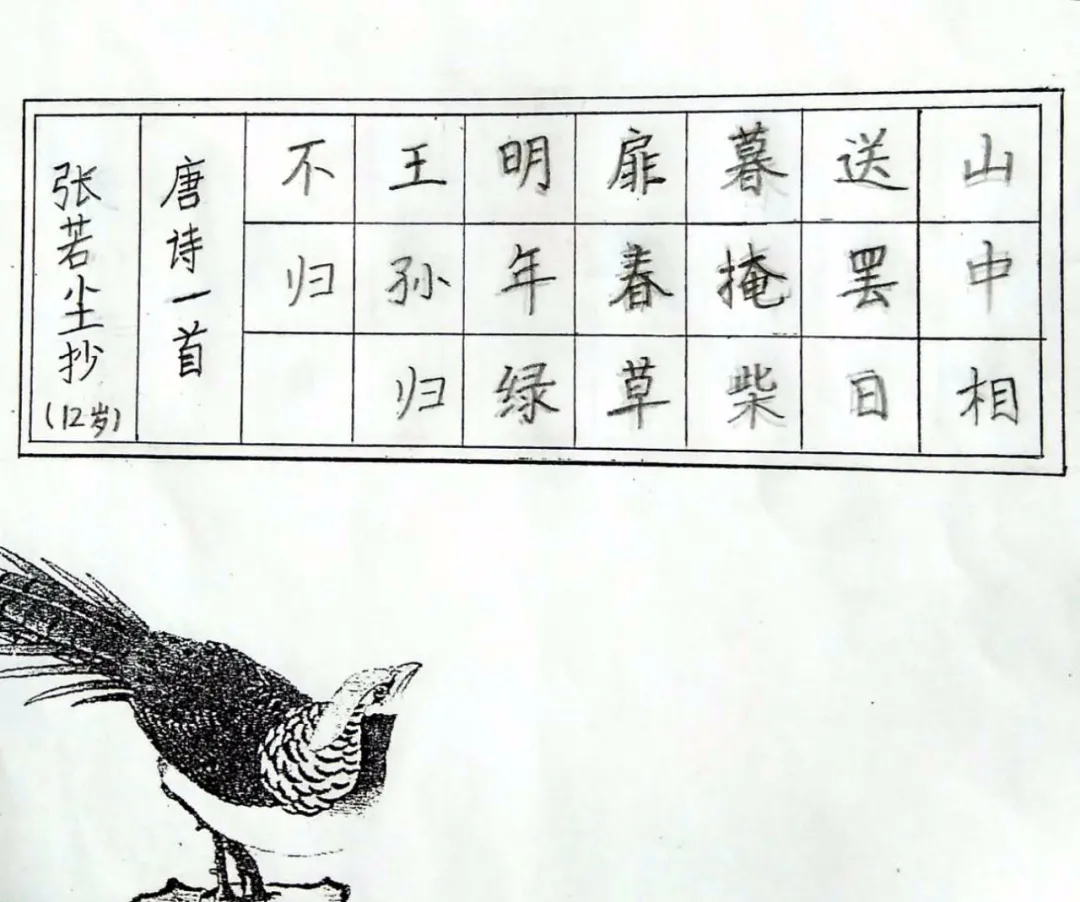 山中相
送罢日
暮掩柴
扉春草
明年绿
王孙归
不归
唐诗一首
张若尘抄
(12岁)